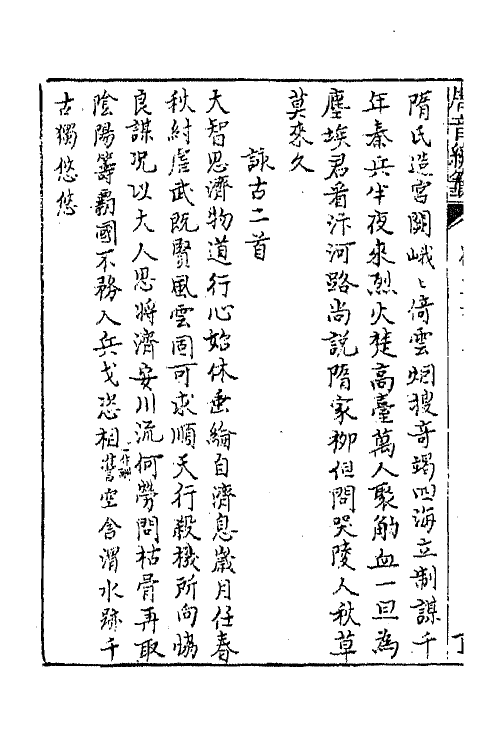 唐音統籤
隋氏造宮闕峨〻倚雲烟搜奇竭四海立制謀千
年秦兵半夜來烈火焚高臺萬人聚觔血一旦為
塵埃君看汴河路尚說隋家柳但問哭陵人秋草
莫來久
詠古二首
大智思濟物道行心始休垂綸自濟息歲月任春
秋紂虐武既賢風雲固可求順天行殺機所向協
良謀況以大人思將濟安川流何勞問枯骨再取
陰陽籌霸國不務入兵戈恣相讐一作酬空令渭水跡千
古獨悠悠